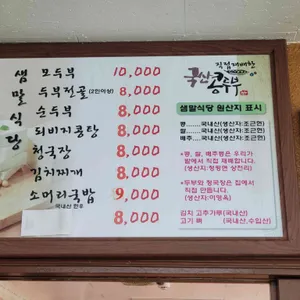 샘말식당
모두부 10,000
두부전골(2인이상) 8,000
순두부 8,000
되비지콩탕 8,000
청국장 8,000
김치찌개 8,000
소머리국밥 9,000
국내산 한우
8,000
직접재배한
국산콩두부
샘말식당 원산지 표시
콩: 국내산(생산자:조근현)
쌀: 국내산(생산자:조근현)
배추: 국내산(생산자:조근현)
*콩, 쌀, 배추등은 우리가
밭에서 직접 재배합니다.
*두부와 청국장은 집에서
직접 만듭니다.
김치 고추가루(국내산)
고기 뼈 (국내산,수입산)